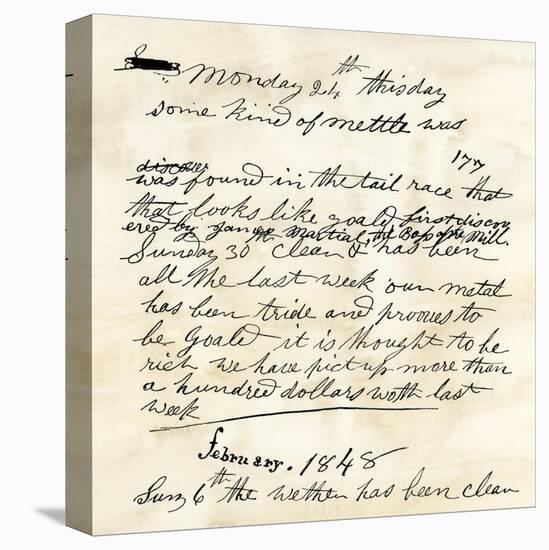 Monday 24th this day
some kind of mettle was
177
discover
was found in the tail race that
that looks like goald first discov
ered by James Martial, the Boss of the Mill.
Sunday 30th clear & has been
all the last week our metal
has been tride and prooves to
be goald it is thought to be
rich we have pict up more than
a hundred dollars woth last
week
february. 1848
Sun 6th the wether has been clear